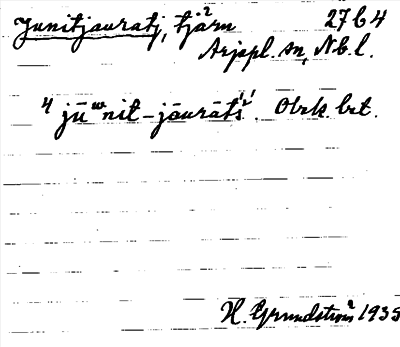 Junitjauratj, tjärn 27b4
Arjepl. sn, Nb. l.
4 jūʷnit-jāurātś. Obek. bet.
H. Grundström 1935